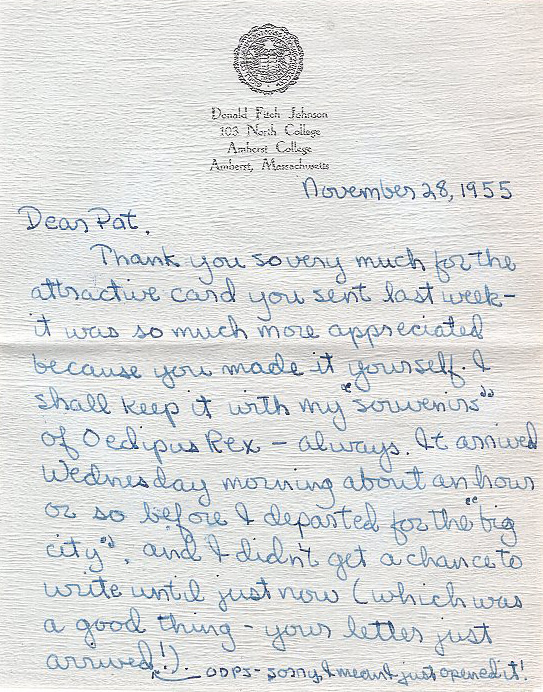 Donald Fitch Johnson
103 North College
Amherst College
Amherst, Massachusetts
November 28, 1955
Dear Pat,
Thank you so very much for the
attractive card you sent last week-
it was so much more appreciated
because you made it yourself. I
shall keep it with my "souvenirs"
of Oedipus Rex - always. It arrived
Wednesday morning about an hour
or so before I departed for the "big
city", and I didn't get a chance to
write until just now (which was
a good thing - your letter just
arrived!).
OOPS - sorry, I meant just opened it!